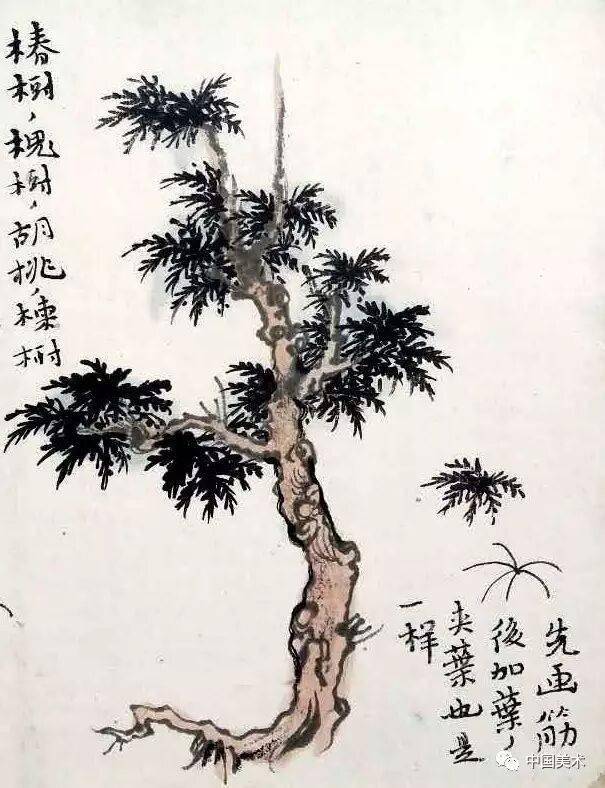 椿樹，槐樹，胡桃，楝樹
先画筋
後加葉，
夹葉也是
一样
中国美术